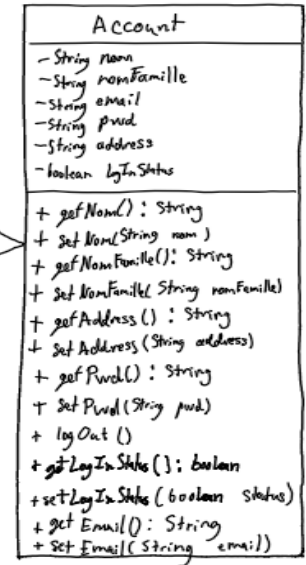 Account
- String nom
- String nomFamille
- String email
- String pwd
- String address
- boolean LogInStatus
+ getNom() : String
+ setNom(String nom)
+ getNomFamille() : String
+ setNomFamille( String nomFamille)
+ getAddress() : String
+ setAddress(String address)
+ getPwd() : String
+ setPwd(String pwd)
+ logOut ()
+ getLogInStatus() : boolean
+ setLogInStatus (boolean status)
+ getEmail() : String
+ setEmail( String email)